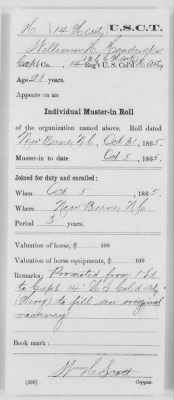 H 14 H. Art'y U.S.C.T.
William H. Hendricks
Capt Co. , 14 Reg't U.S. Col'd H. Art'y
Age years.
Appears on an
Individual Muster-in Roll
of the organization named above. Roll dated
New Berne, N.C. Oct 31, 1865.
Muster-in to date Oct 5, 1865.
Joined for duty and enrolled:
When Oct 5 1865.
Where New Berne, N.C.
Period 3 years.
Valuation of horse, $ 100
Valuation of horse equipments, $ 100
Remarks: Promoted from 1 Lt
to Capt 14" U.S. Cold Arty
(Heavy) to fill an original
vacancy
Book mark:
Wm C Scott
(330) Copyist.